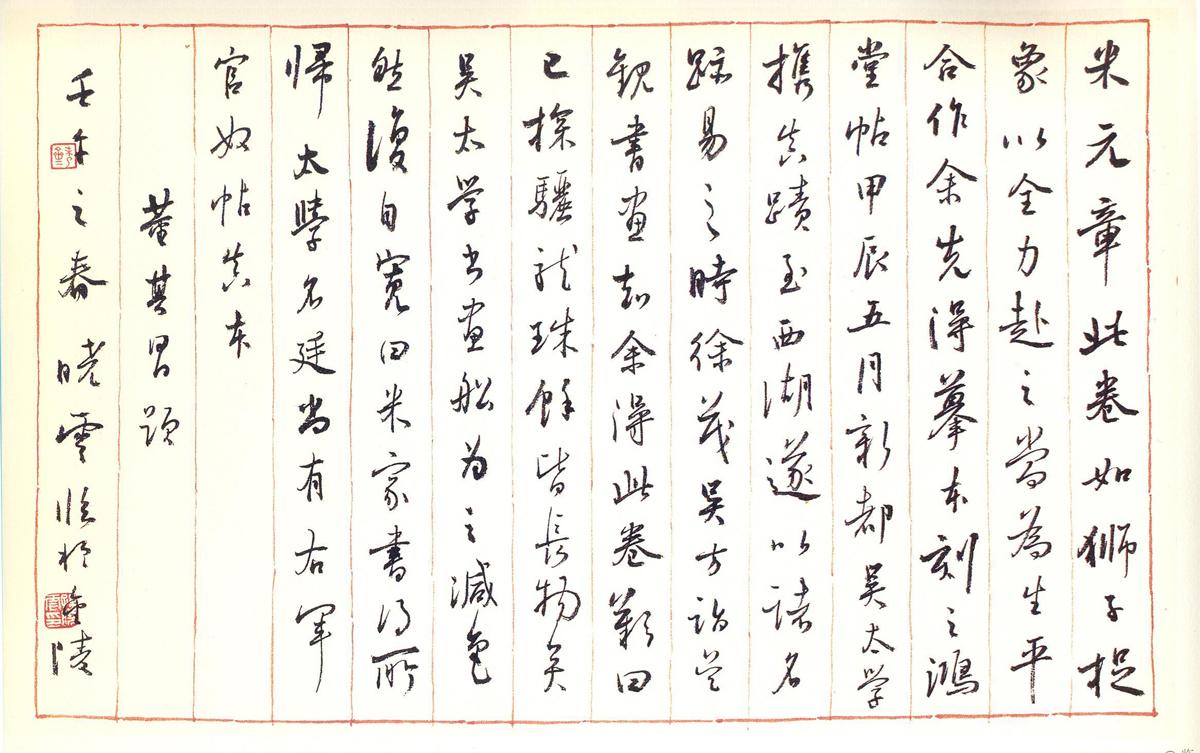 米元章此卷如獅子捉
象以全力赴之當為生平
合作余先得摹本刻之鴻
堂帖甲辰五月新都吴太学
攜真蹟至西湖遂以諸名
跡易之時徐茂吴方詣吴
觀書画知余得此卷歎曰
已探驪龙珠餘皆長物矣
吴太学书画船为之減色
然復自寬曰米家書得所
歸太學名廷尚有右軍
官奴帖真本
董其昌題
壬午之春曉雲臨於金陵